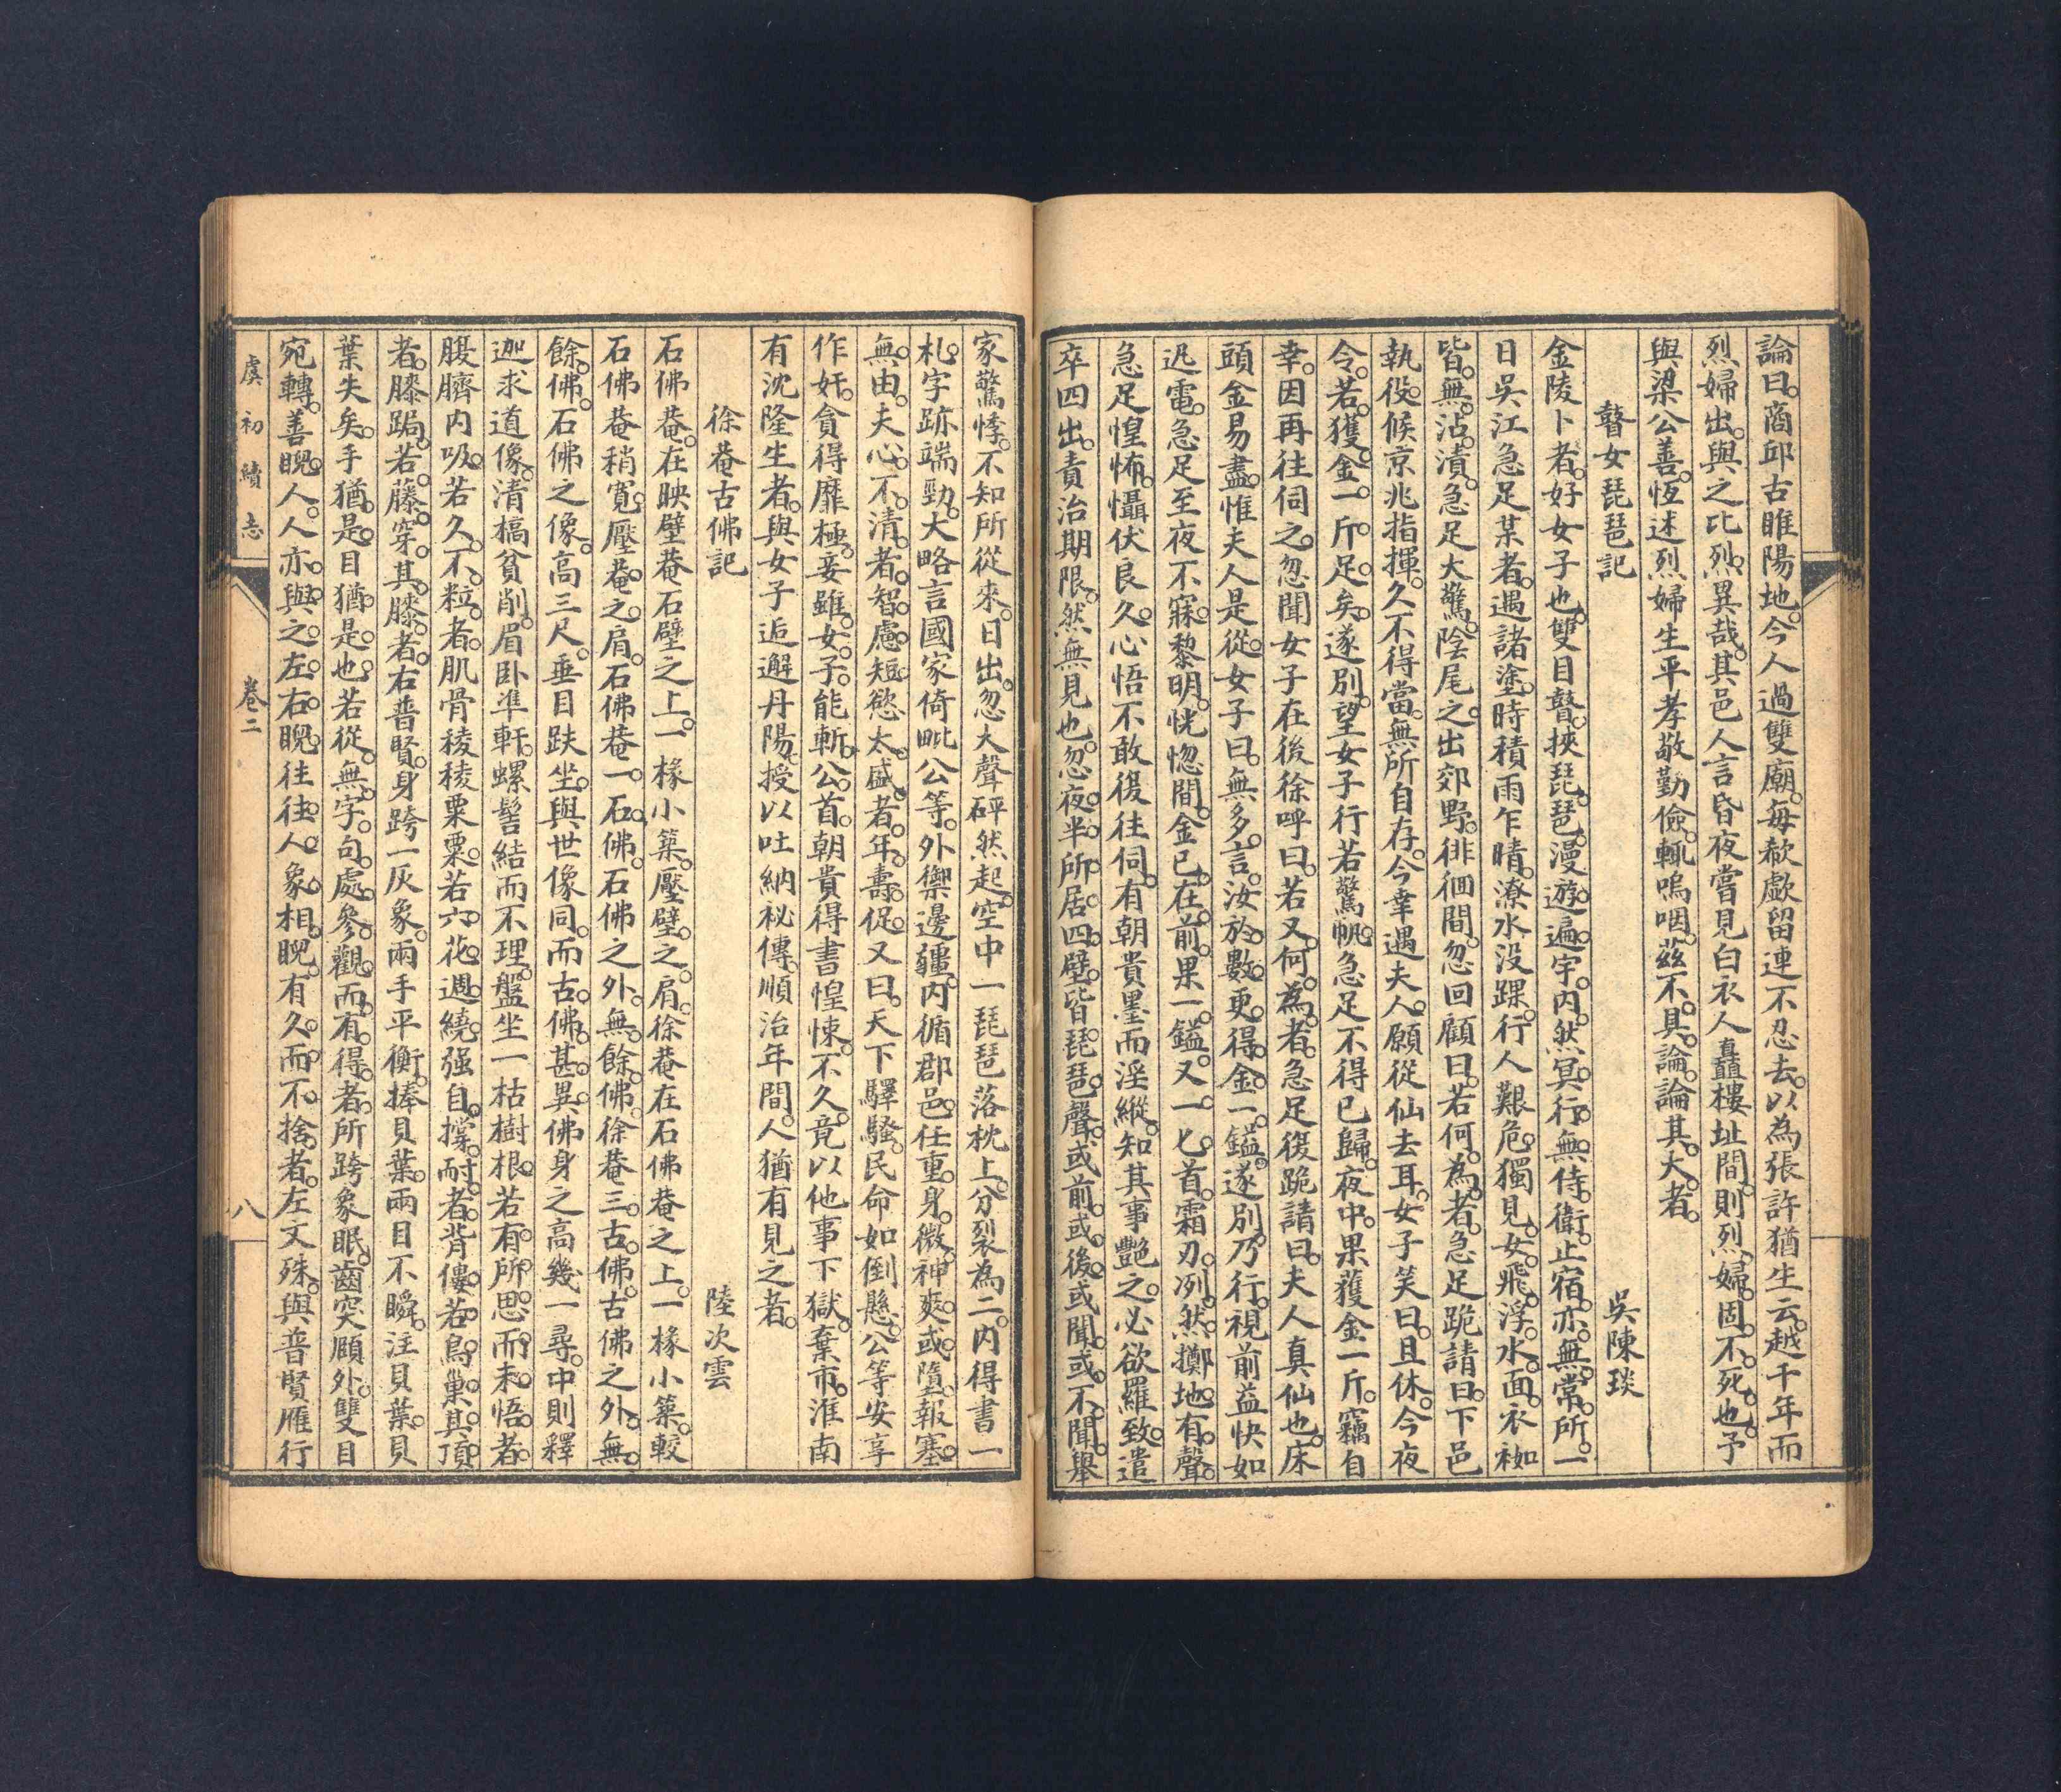 論曰。商邱古睢陽地。今人過雙廟。每欷歔留連不忍去。以為張許猶生云。越千年而
烈婦出。與之比烈。異哉。其邑人言昏夜嘗見白衣人矗樓址間。則烈婦固不死也。予
與梁公善。恆述烈婦生平孝敬勤儉。輒嗚咽。茲不具論。論其大者。
瞽女琵琶記　吳陳琰
金陵卜者。好女子也。雙目瞽。挾琵琶。漫遊遍宇內。然冥行無侍衛。止宿亦無常所。一
日吳江急足某者。遇諸塗。時積雨乍晴。潦水沒踝。行人艱危。獨見女飛浮水面。衣袽
皆無沾漬。急足大驚。陰尾之出郊野。徘徊間。忽回顧曰。若何為者。急足跪請曰。下邑
執役。候京兆指揮。久不得當。無所自存。今幸遇夫人。願從仙去耳。女子笑曰。且休。今夜
令若獲金一斤足矣。遂別。望女子行若驚帆。急足不得已歸。夜中果獲金一斤。竊自
幸。因再往伺之。忽聞女子在後徐呼曰。若又何為者。急足復跪請曰。夫人真仙也。床
頭金易盡。惟夫人是從。女子曰。無多言。汝於數更得金一鎰。遂別。乃行。視前益快如
迅電。急足至夜不寐。黎明。恍惚間。金已在前。果一鎰。又一匕首。霜刃冽然。擲地有聲。
急足惶怖。懾伏良久。心悟不敢復往伺。有朝貴墨而淫縱。知其事豔之。必欲羅致。遣
卒四出。責治期限。然無見也。忽夜半所居四壁。皆琵琶聲。或前或後。或聞或不聞。舉
家驚悸。不知所從來。日出。忽大聲砰然起。空中一琵琶落枕上。分裂為二。內得書一
札。字跡端勁。大略言國家倚毗公等。外禦邊疆。內循郡邑。任重身微。神爽或墮。報塞
無由。夫心不清者。智慮短。慾太盛者。年壽促。又曰。天下驛騷。民命如倒懸。公等安享
作奸。貪得靡極。妾雖女子。能斬公首。朝貴得書惶悚。不久竟以他事下獄。棄市。淮南
有沈隆生者。與女子逅邂丹陽。授以吐納祕傳。順治年間。人猶有見之者。
徐菴古佛記　陸次雲
石佛菴。在映壁菴石壁之上。一椽小築。壓壁之肩。徐菴在石佛菴之上。一椽小築。較
石佛菴稍寬。壓菴之肩。石佛菴一石佛。石佛之外。無餘佛。徐菴三古佛。古佛之外。無
餘佛。石佛之像。高三尺。垂目趺坐。與世像同。而古佛甚異。佛身之高幾一尋。中則釋
迦求道像。清槁貧削。眉卧準軒。螺髻結而不理。盤坐一枯樹根。若有所思而未悟者。
腹臍內吸。若久不粒者。肌骨稜稜粟粟。若六花週繞。强自撐耐者。背僂。若鳥巢其頂
者。膝跼。若藤穿其膝者。右普賢。身跨一灰象。兩手平衡。捧貝葉。兩目不瞬。注貝葉。貝
葉失矣。手猶是。目猶是也。若從無字句處。參觀而有得者。所跨象眠。齒突頤外。雙目
宛轉。善睨人。人亦與之左右。睨往往人。象相睨。有久而不捨者。左文殊。與普賢雁行
虞初續志
卷二
八